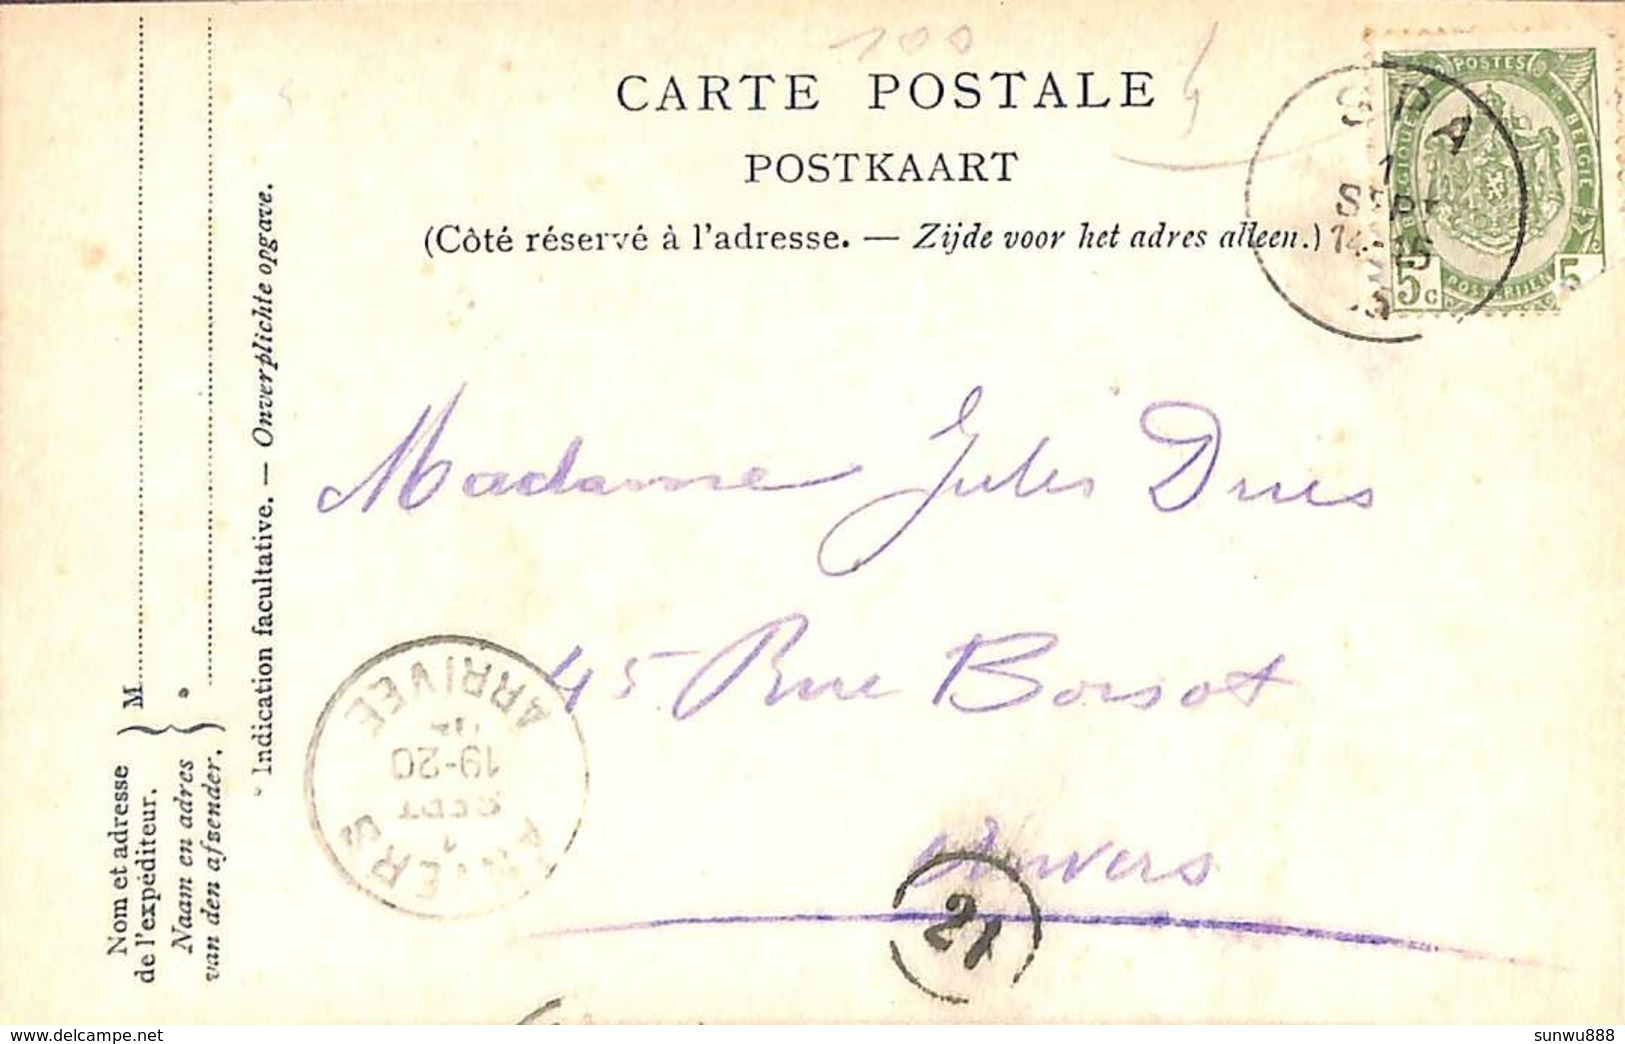 100
CARTE POSTALE
POSTKAART
(Côté réservé à l'adresse. — Zijde voor het adres alleen.)
POSTES
BELGIQUE
BELGIË
POSTERIJEN
5c 5
SPA
1
SEPT
14-15
Madame Jules Dries
45 Rue
Anvers
ARRIVÉE
19-20
SEPT
1
ANVERS
21
Nom et adresse
de l'expéditeur.
M
Naam en adres
van den afzender.
Indication facultative. — Onverplichte opgave.
sunwu888